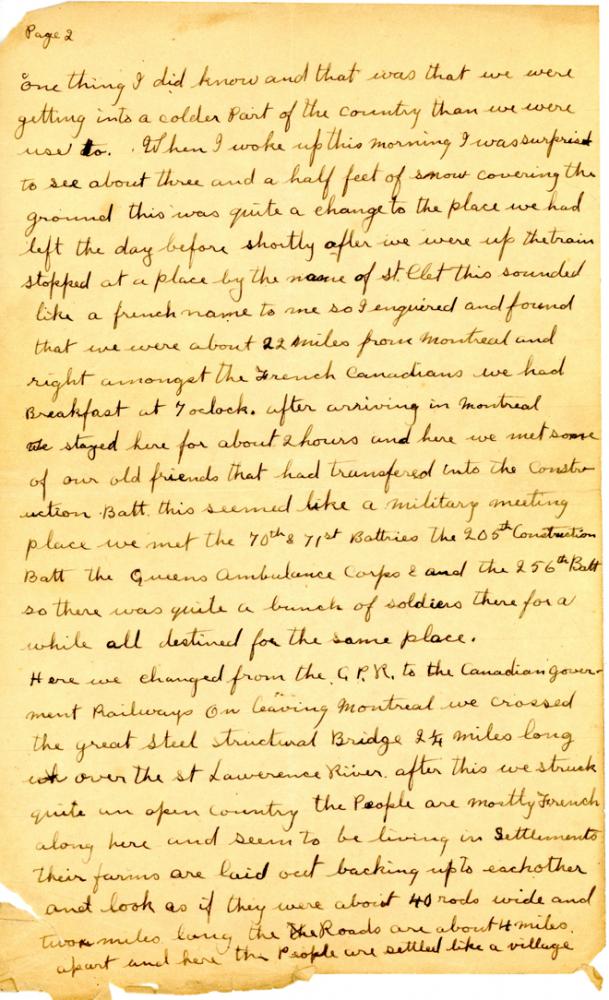 Page 2
One thing I did know and that was that we were
getting into a colder Part of the country than we were
use to. When I woke up this morning I was surprised
to see about three and a half feet of snow covering the
ground this was quite a change to the place we had
left the day before shortly after we were up the train
stopped at a place by the name of St. Clet this sounded
like a french name to me so I enquired and found
that we were about 22 miles from Montreal and
right amongst the French Canadians we had
Breakfast at 7 oclock. after arriving in Montreal
we stayed here for about 2 hours and here we met some
of our old friends that had transfered into the Constr-
uction Batt. this seemed like a military meeting
place we met the 70th & 71st Battries the 205th Construction
Batt the Queens Ambulance Corps & and the 256th Batt
so there was quite a bunch of soldiers there for a
while all destined for the same place.
Here we changed from the C.P.R. to the Canadian gover-
ment Railways On leaving Montreal we crossed
the great Steel Structural Bridge 2¼ miles long
over the St Lawerence River. after this we struck
quite an open country the People are mostly French
along here and seem to be living in Settlements
their farms are laid out backing up to eachother
and look as if they were about 40 rods wide and
two miles long the Roads are about 4 miles.
apart and here the People are settled like a village